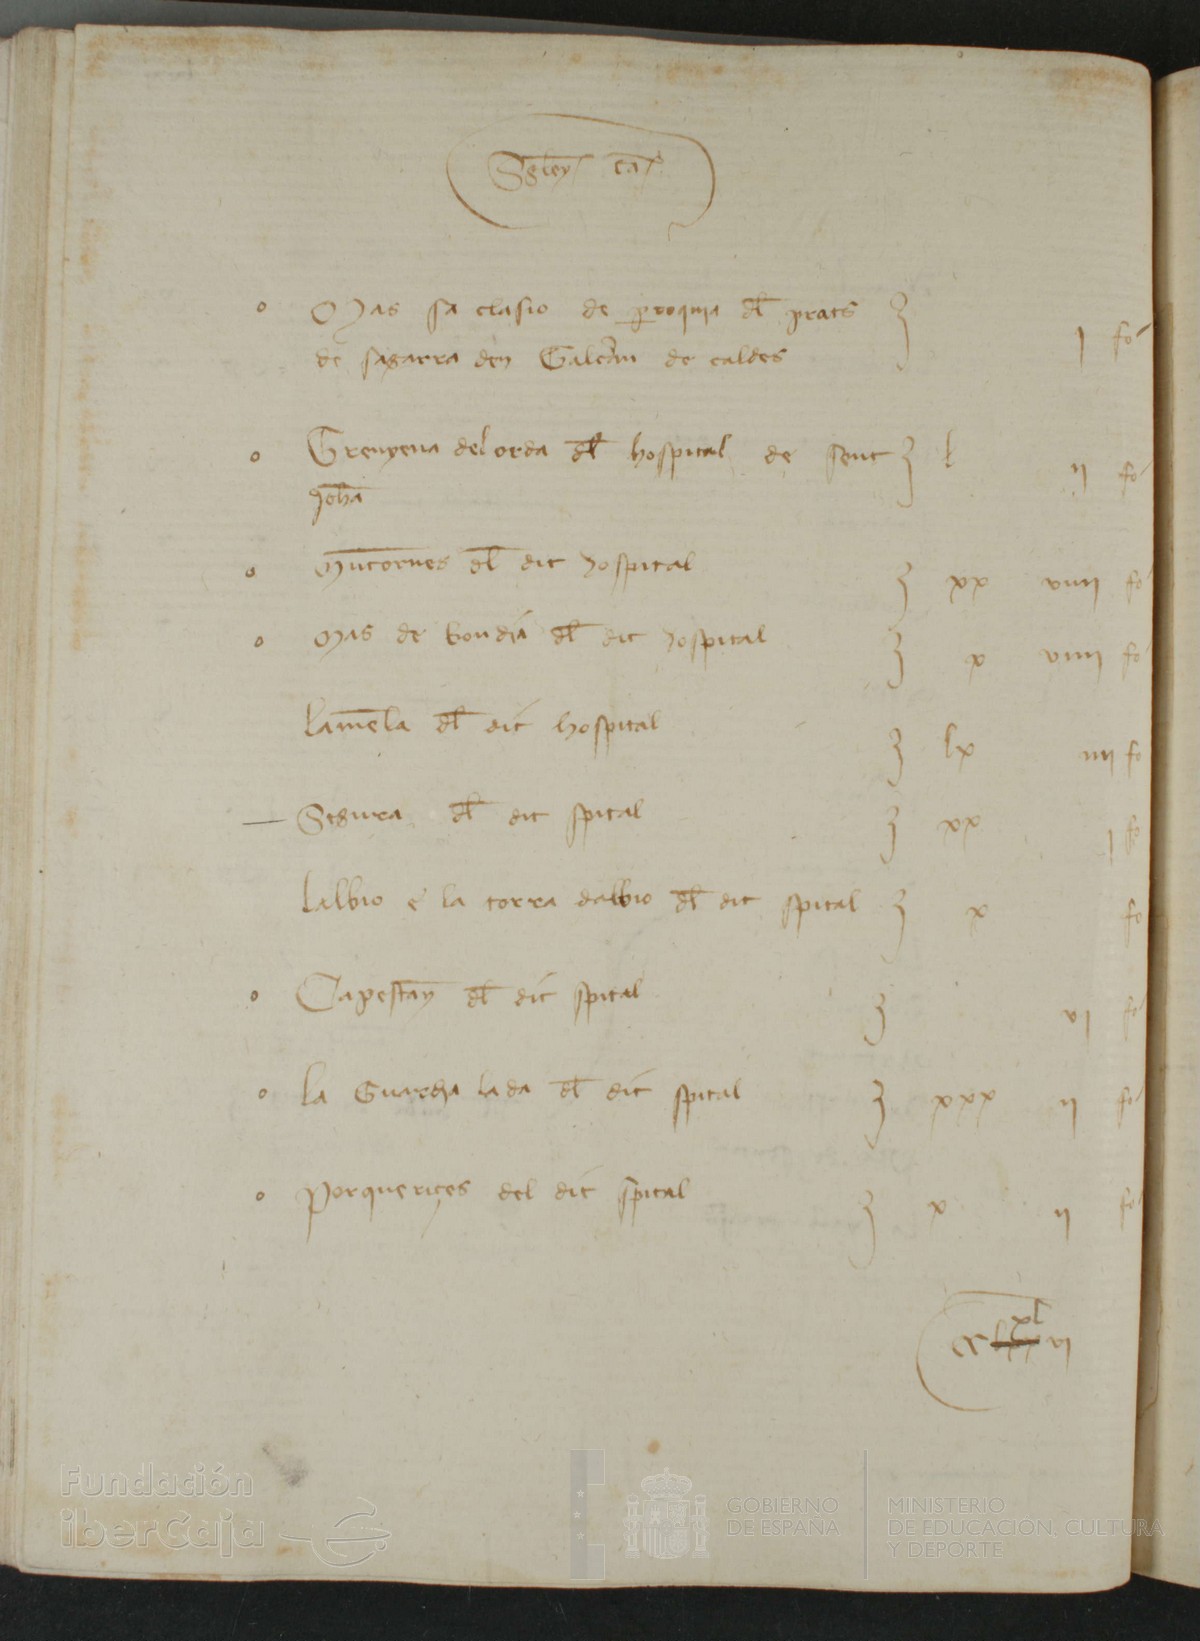 Mas sa clasio de proquia dl prats
de sagarra den Galcã de caldes
j fo
Grenyena del orda dl hospital de sent l ij fo
Johã
Mutornes dl dit hospital xx viiij fo
Mas de bondia dl dit hospital x viiij fo
lamẽla dl dit hospital lx iiij fo
Segura dl dit spital xx j fo
lalbio e la torra dalbio dl dit spital x fo
Capestãy dl dit spital vj fo
la Guardia lada dl dit spital xxx ij fo
Porquerices del dit spital x ij fo
xl
vj
Fundación
iberCaja
GOBIERNO
DE ESPAÑA
MINISTERIO
DE EDUCACIÓN, CULTURA
Y DEPORTE